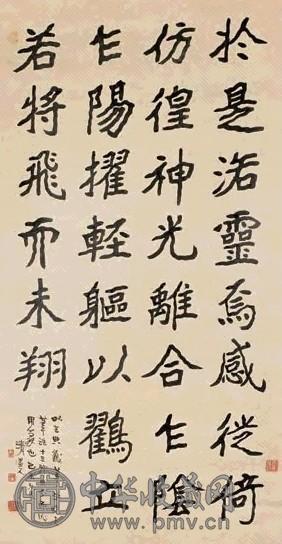 於是洛靈焉感徙倚
仿徨神光離合乍陰
乍陽擢輕軀以鶴立
若將飛而未翔
中华收藏网
www.pmv.cn